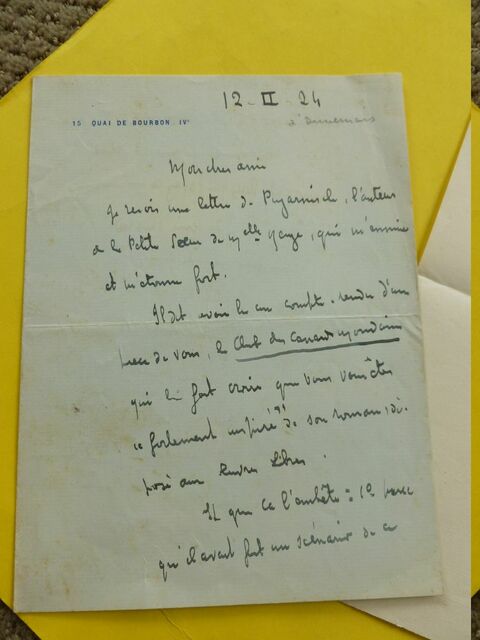 12 - II - 24
15 QUAI DE BOURBON. IVᵉ
Mon cher ami
Je reçois une lettre de Puyarnische, l'auteur
de la Petite Sœur de Mˡˡᵉ , qui m'ennuie
et m'étonne fort.
Il dit avoir lu un compte-rendu d'une
pièce de vous, le Club des Canards Mondains
qui lui fait croire que vous vous êtes
"fortement inspiré" de son roman, dé-
posé aux Œuvres Libres.
Et que ça l'embête : 1º parce
qu'il avait fait un scénario de ce